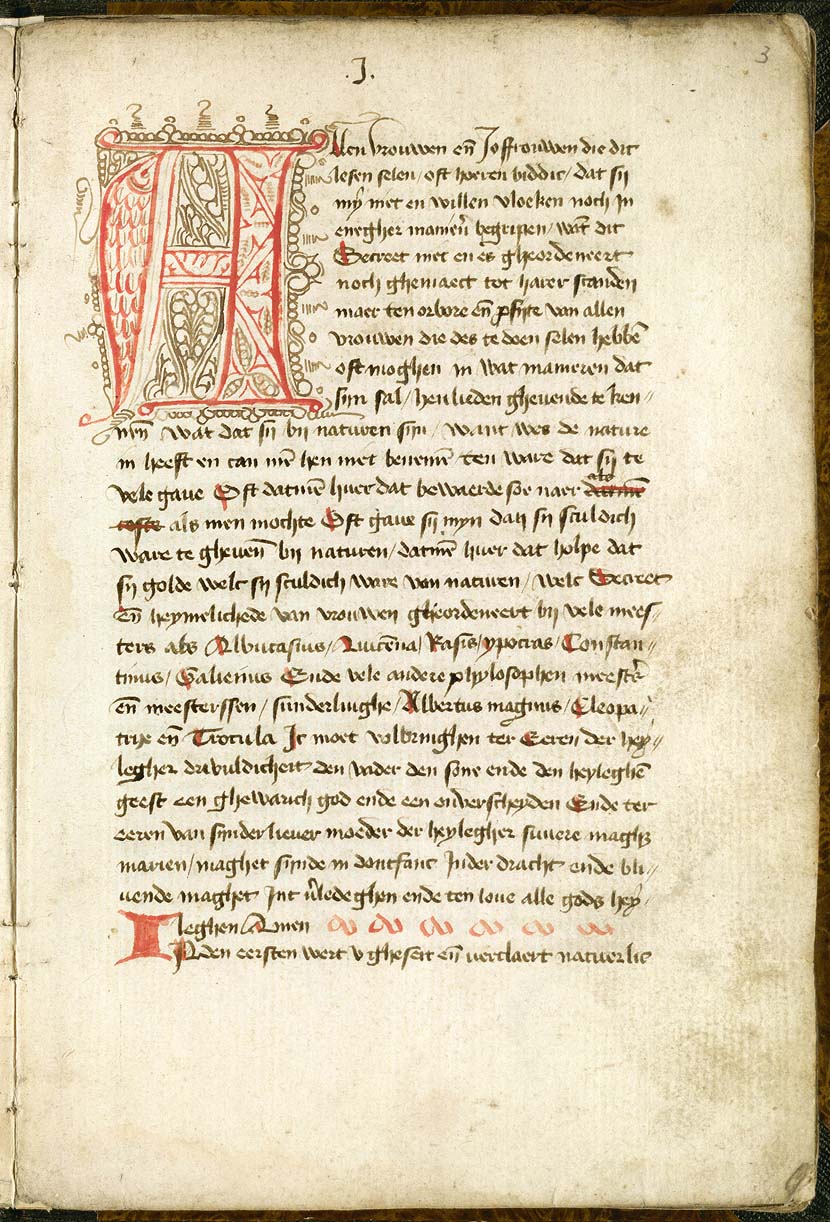 3
.J.
Allen vrouwen en̄ Joffrouwen die dit
lesen selen / oft hoeren biddic / dat sij
mÿ niet en willen vloeken noch jn
enegher manieren̄ begripen / wāt dit
Secreet niet en es gheordeneert
noch ghemaect tot harer scanden
maer ten orbore en̄ ꝓfijte van allen
vrouwen die des te doen selen hebbē
oft moghen in wat manieren dat
sijn sal / hen lieden ghevende te ken⸗
nen̄ wat dat sij bij naturen sijn / want wes de nature
in heeft en can mē hen niet benemē ten ware dat sij te
vele gaue Oft datmē hier dat bewaerde soe naer datmē als
teste als men mochte Oft gaue sij myn dan sij sculdich
ware te gheven̄ bij naturen / datmē hier dat holpe dat
sij golde welc sij sculdich ware van naturen / Welc Secreet
en̄ heymelichede van vrouwen gheordeneert bij vele mees⸗
ters als Albucasius / Auicēna / Rasis / ypocras / Constan⸗
tinus / Galienus Ende vele andere phylosophen meestēr
en̄ meesterssen / sunderlinghe / Albertus magnus / Cleopa⸗
trije en̄ Trotula Jc moet volbringhen ter Eeren der hey⸗
legher drivuldicheit den vader den sone ende den heyleghē
geest een ghewarich god ende een onverscheyden Ende ter
eeren van sijnder liever moeder der heylegher suvere maghꝫ
marien / maghet sijnde in dontfanc Jnder dracht ende bli⸗
uende maghet Jnt v̄ledeghen ende ten love alle gods hey⸗
leghen Amen
JNden eersten wert v gheseit en̄ verclaert natuerlic